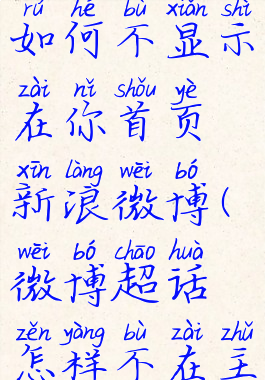 rú hé bù xiǎn shì
如何不显示
zài nǐ shǒu yè
在你首页
xīn làng wēi bó
新浪微博(
wēi bó chāo huà
微博超话
zěn yàng bù zài zhǔ
怎样不在主